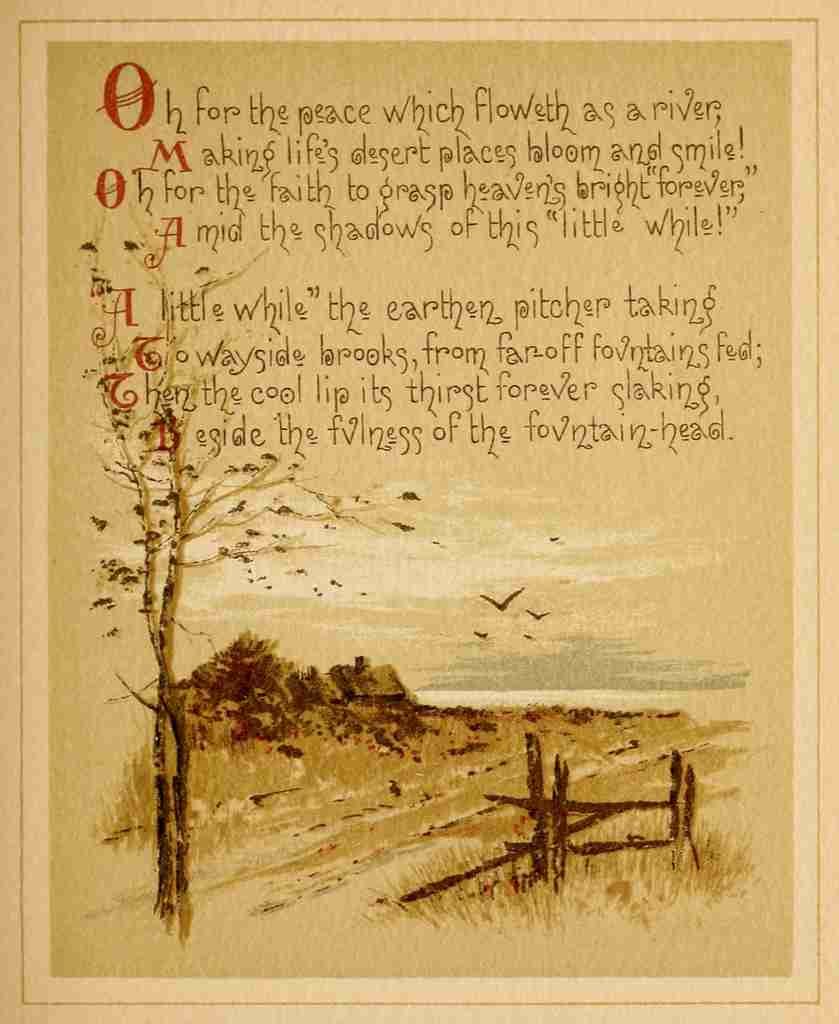 Oh for the peace which floweth as a river,
Making life's desert places bloom and smile!
Oh for the faith to grasp heaven's bright "forever,"
Amid the shadows of this "little while!"
"A little while" the earthen pitcher taking
To wayside brooks, from far-off fountains fed;
Then the cool lip its thirst forever slaking,
Beside the fulness of the fountain-head.